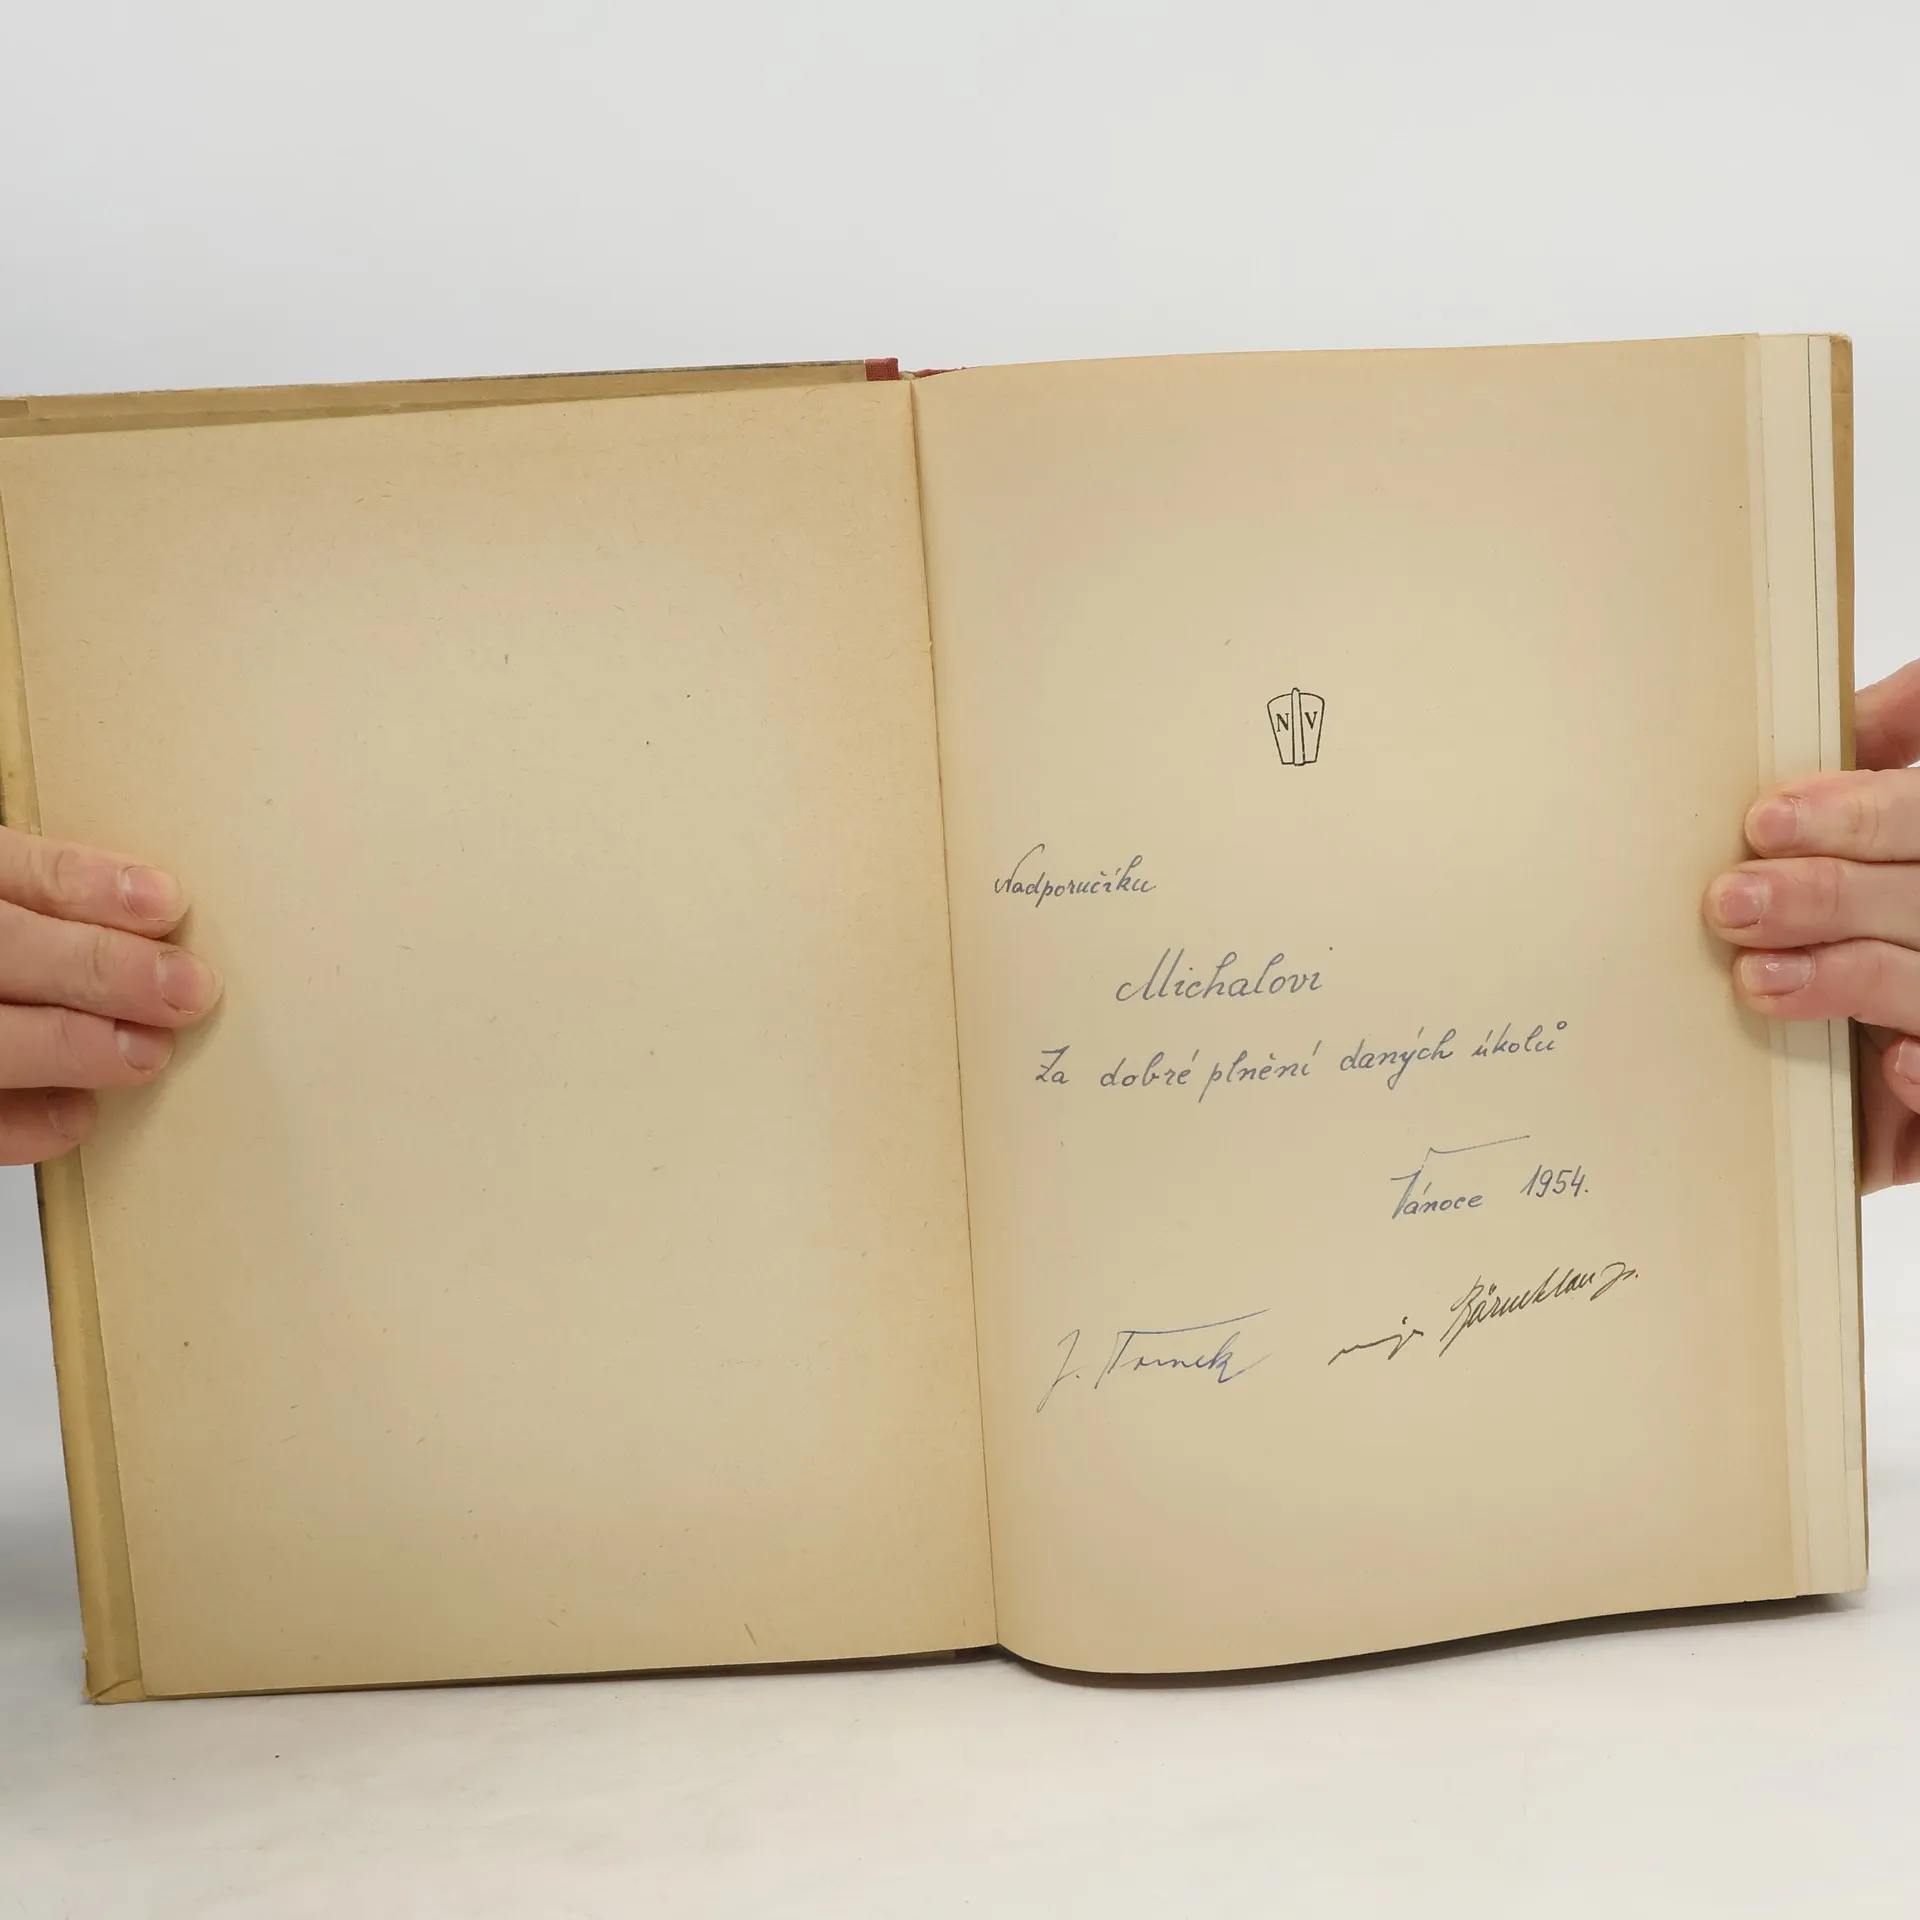 N V
Nadporučíku
Michalovi
Za dobré plnění daných úkolů
Vánoce 1954.
J.